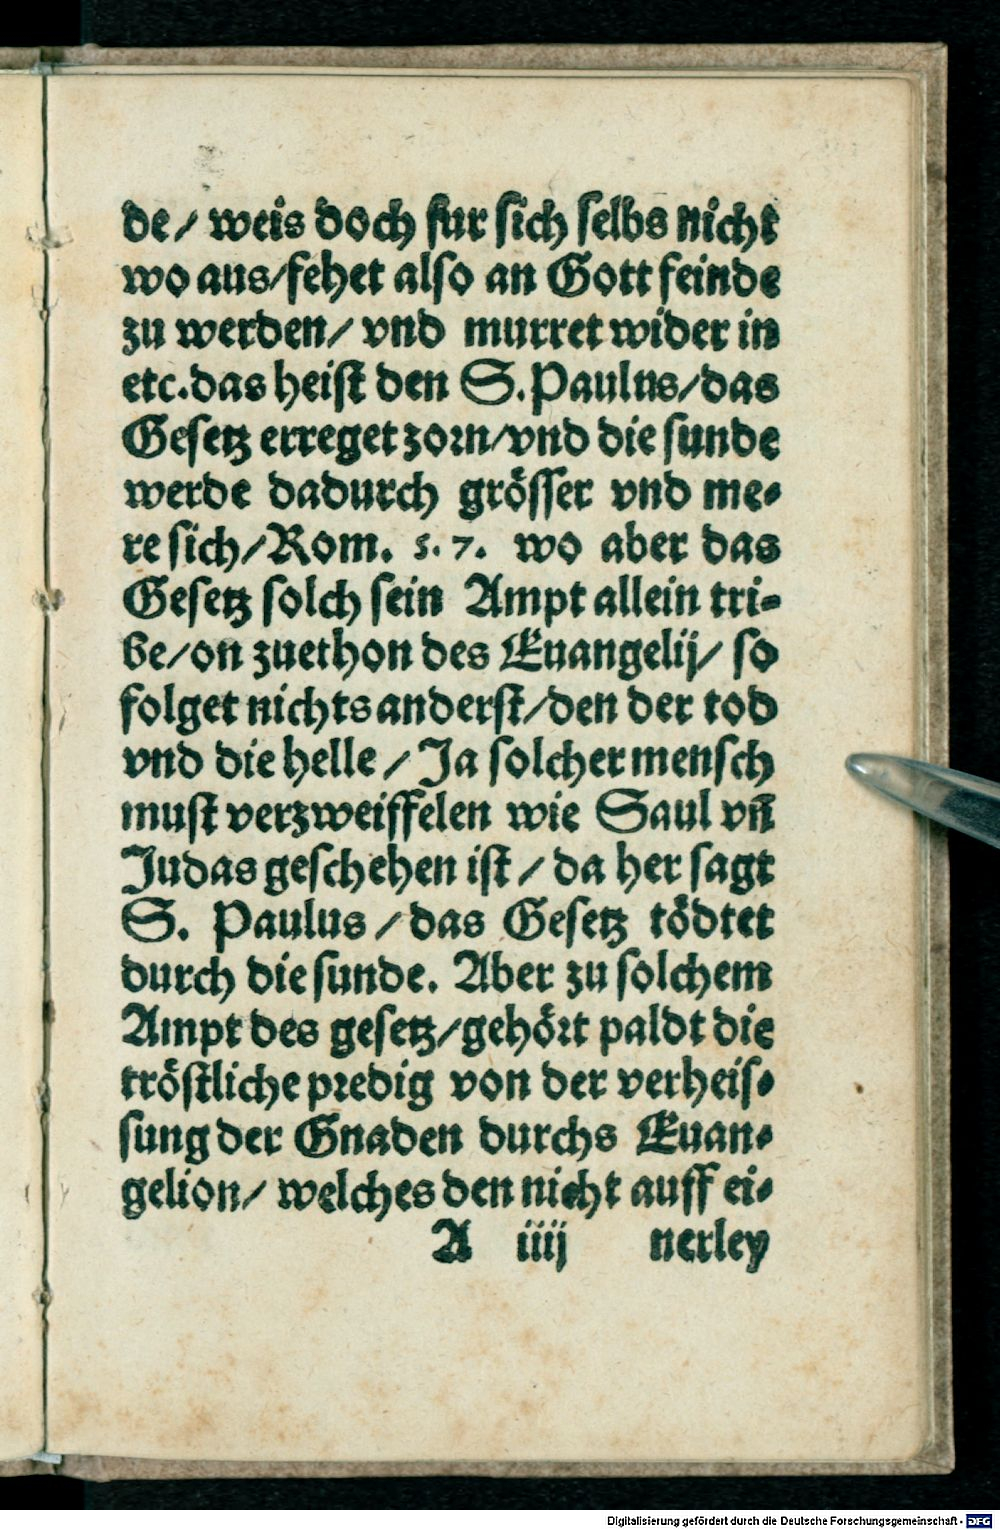 de/ weis doch fur sich selbs nicht
wo aus/fehet also an Gott feinde
zu werden/ vnd murret wider in
etc. das heist den S. Paulus/das
Gesetz erreget zorn/vnd die sunde
werde dadurch grösser vnd me-
re sich/Rom. 5. 7. wo aber das
Gesetz solch sein Ampt allein tri-
be/on zuethon des Euangelij/ so
folget nichts anderst/den der tod
vnd die helle / Ja solcher mensch
must verzweiffelen wie Saul vñ
Judas geschehen ist / da her sagt
S. Paulus / das Gesetz tödtet
durch die sunde. Aber zu solchem
Ampt des gesetz/gehört paldt die
tröstliche predig von der verheis-
sung der Gnaden durchs Euan-
gelion/ welches den nicht auff ei-
A iiij nerley
Digitalisierung gefördert durch die Deutsche Forschungsgemeinschaft - DFG